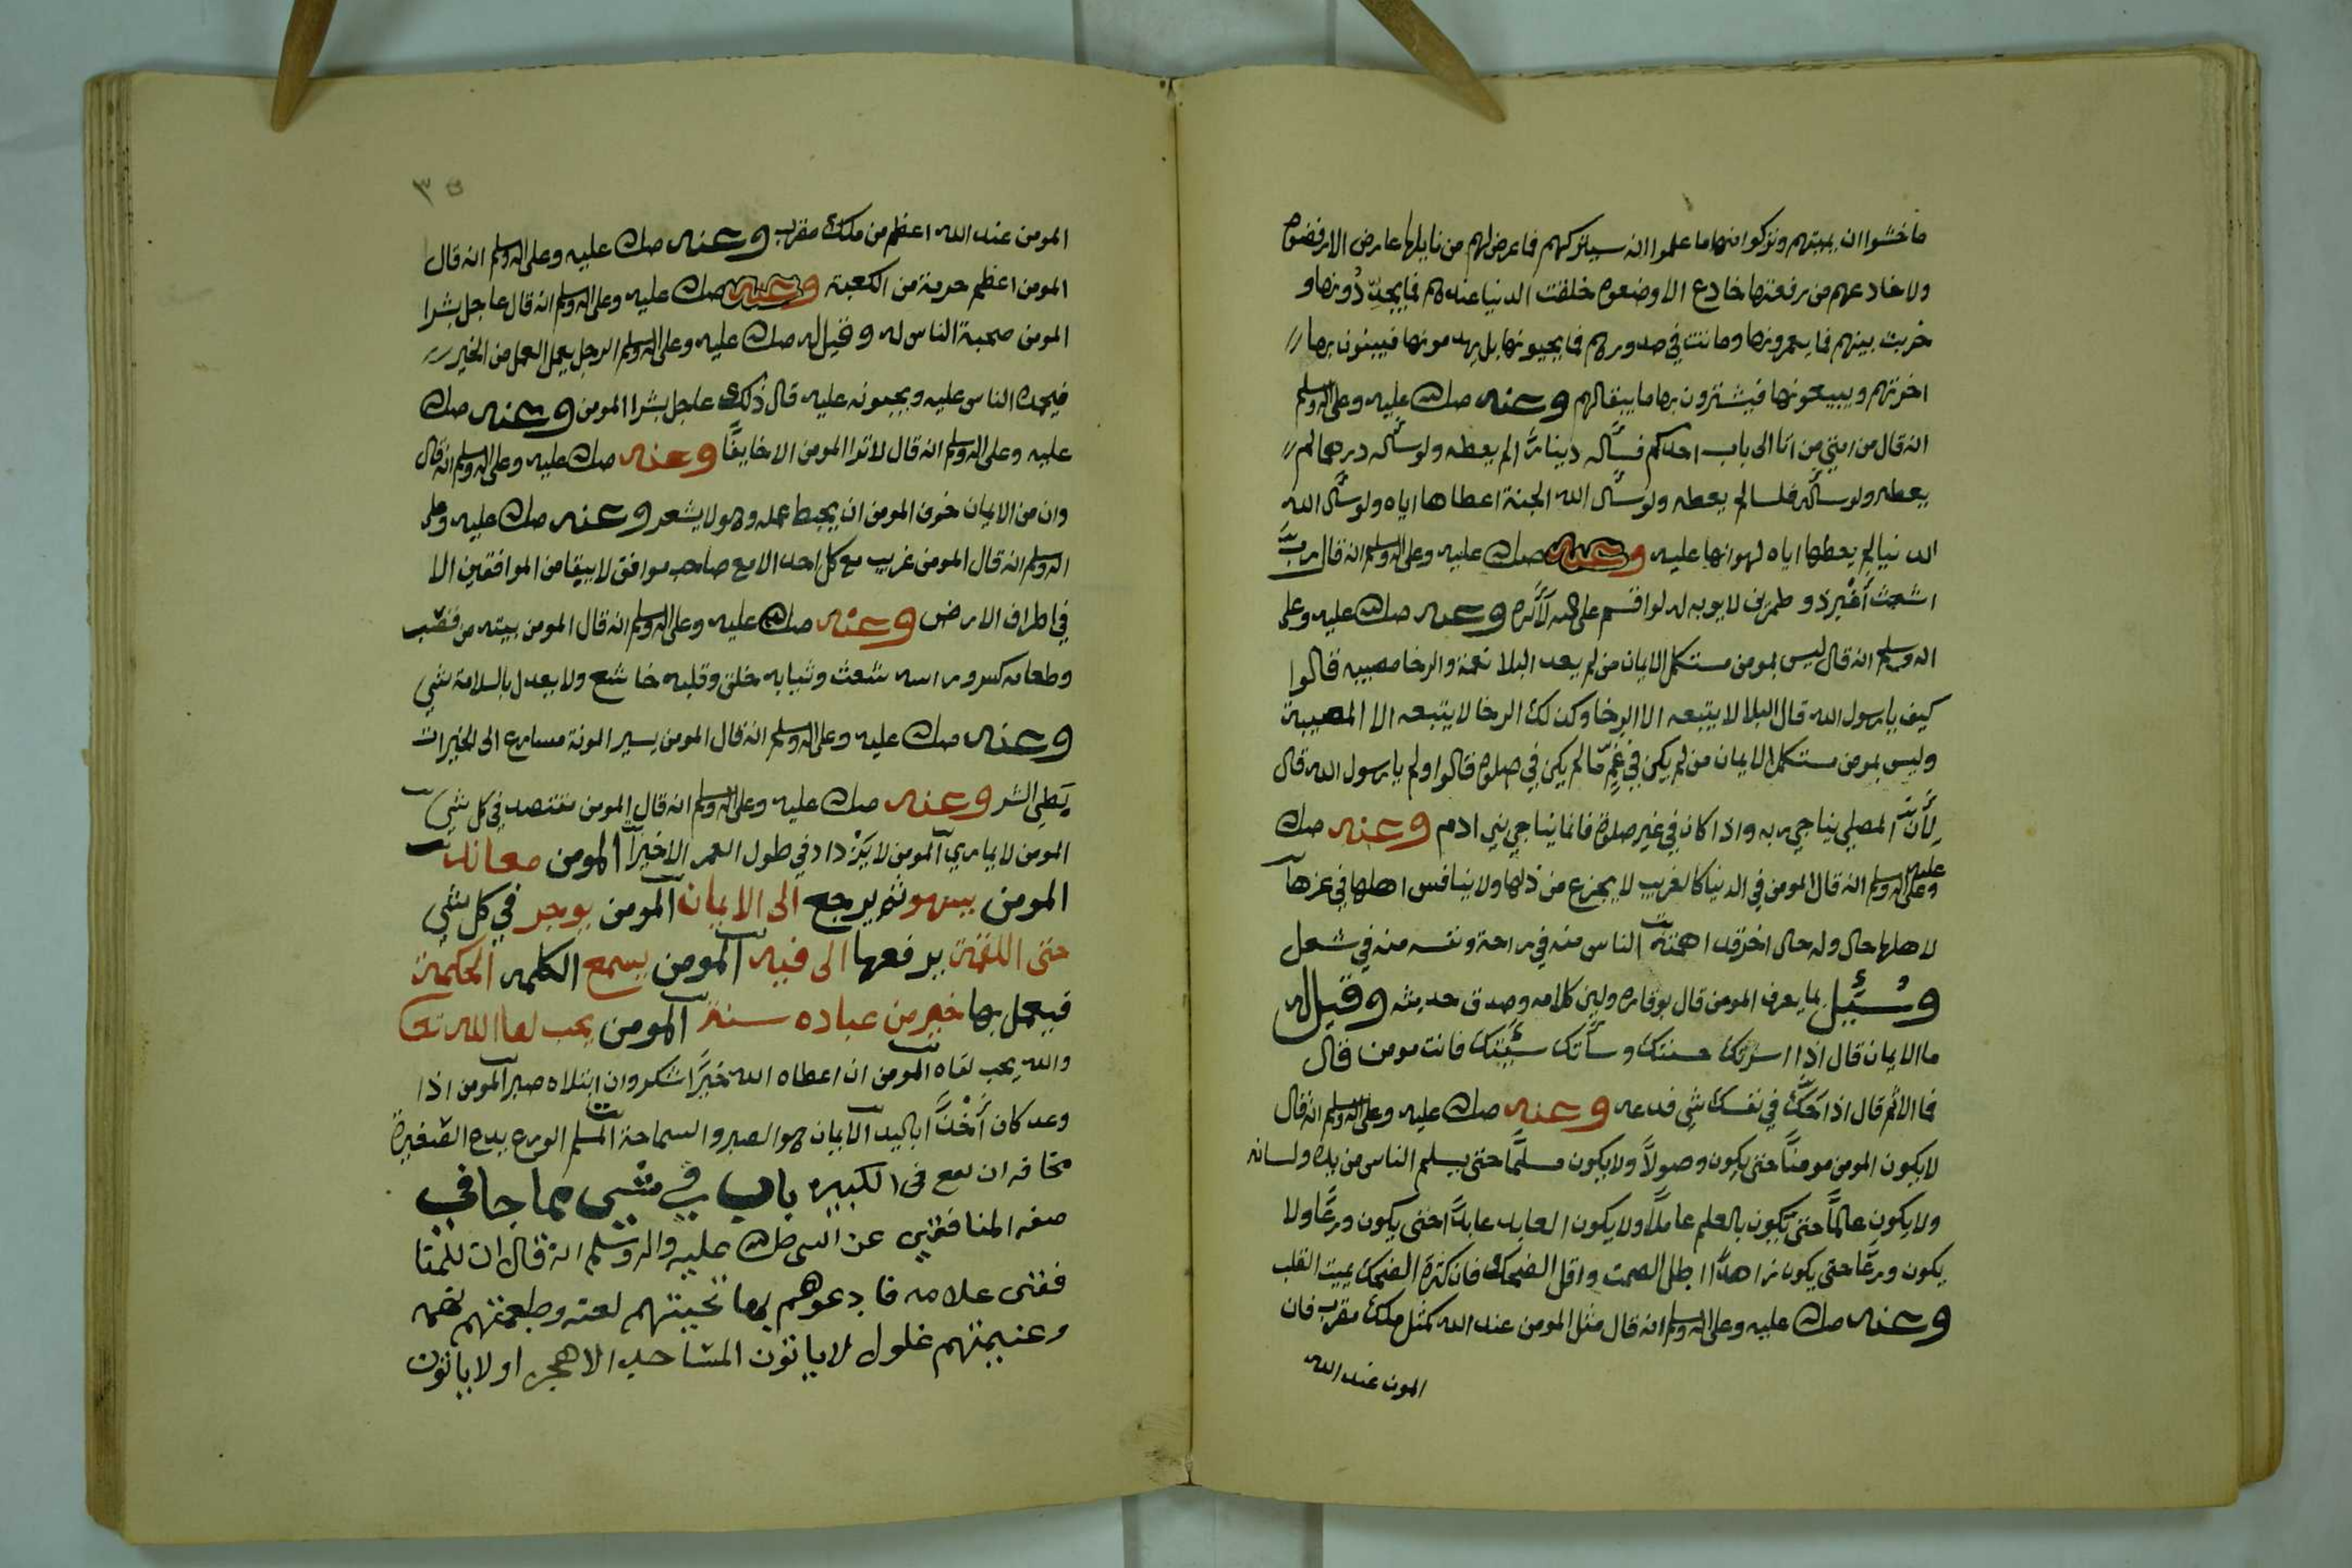 ما خشوا ان يميتهم وتركوا منها ما علموا انه سيتركهم فما عرض لهم من نايلها عارض الا رفضوه
ولا خادعهم من رفعتها خادع الا وضعوه خلقت الدنيا عندهم فما يجددونها و
خربت بينهم فما يعمرونها وماتت في صدورهم فما يحيونها بل يهدمونها فيبنون بها
اخرتهم ويبيعونها فيشترون بها ما يبقا لهم وعنه صلى الله عليه وعلى اله وسلم
انه قال من امتي من اتا الى باب احدكم فسأله دينارًا لم يعطه ولو سأله درهما لم
يعطه ولو سأله فلسا لم يعطه ولو سأل الله الجنة اعطاها اياه ولو سأل الله
الدنيا لم يعطها اياه لهوانها عليه وعنه صلى الله عليه وعلى اله وسلم انه قال رب
اشعث أغبر ذو طمرين لا يوبه له لو اقسم على الله لأبره وعنه صلى الله عليه وعلى
اله وسلم انه قال ليس بمومن مستكمل الايمان من لم يعد البلا نعمة والرخا مصيبه قالوا
كيف يا رسول الله قال البلا لا يتبعه الا الرخا وكذلك الرخا لا يتبعه الا المصيبة
وليس بمومن مستكمل الايمان من لم يكن في غمٍّ ما لم يكن في صلوة قالوا ولم يا رسول الله قال
لأن المصلي يناجي ربه واذا كان في غير صلوة فانما يناجي بني ادم وعنه صلى الله
عليه وعلى اله وسلم انه قال المومن في الدنيا كالغريب لا يجزع من ذلها ولا ينافس اهلها في عزها
لاهلها حال وله حال اخر قد اهمته الناس منه في راحة ونفسه منه في شغل
وسُئِل بما يعرف المومن قال بوقاره ولين كلامه وصدق حديثه وقيل له
ما الايمان قال اذا سرتك حسنتك وسأتك سيئتك فانت مومن قال
فما الاثم قال اذا حَكَّ في نفسك شي فدعه وعنه صلى الله عليه وعلى اله وسلم انه قال
لا يكون المومن مومنًا حتى يكون وصولًا ولا يكون مسلمًا حتى يسلم الناس من يده ولسانه
ولا يكون عالمًا حتى يكون بالعلم عاملًا ولا يكون العابد عابدًا حتى يكون ورعًا ولا
يكون ورعًا حتى يكون زاهدًا اطل الصمت واقل الضحك فان كثرة الضحك يميت القلب
وعنه صلى الله عليه وعلى اله وسلم انه قال مثل المومن عند الله كمثل ملك مقرب فان
المومن عند الله
٣٥
المومن عند الله اعظم من ملك مقرب وعنه صلى الله عليه وعلى اله وسلم انه قال
المومن اعظم حرمة من الكعبة وعنه صلى الله عليه وعلى اله وسلم انه قال عاجل بشرا
المومن محبة الناس له وقيل له صلى الله عليه وعلى اله وسلم الرجل يعمل العمل من الخير
فيحمده الناس عليه ويحبونه عليه قال ذلك عاجل بشرا المومن وعنه صلى الله
عليه وعلى اله وسلم انه قال لا ترا المومن الا خايفًا وعنه صلى الله عليه وعلى اله وسلم انه قال
وان من الايمان خوف المومن ان يحبط عمله وهو لا يشعر وعنه صلى الله عليه وعلى
اله وسلم انه قال المومن غريب مع كل احد الا مع صاحب موافق لا يبقا من الموافقين الا
في اطراف الارض وعنه صلى الله عليه وعلى اله وسلم انه قال المومن بيته من قصب
وطعامه كسر وراسه شعث وثيابه خلق وقلبه خاشع ولا يعدل بالسلامة شي
وعنه صلى الله عليه وعلى اله وسلم انه قال المومن يسير المونة مسارع الى الخيرات
بَطِي الشر وعنه صلى الله عليه وعلى اله وسلم انه قال المومن مقتصد في كل شي
المومن لا يماري المومن لا يزداد في طول العمر الا خيرًا المومن معان
المومن يسهو ثم يرجع الى الايمان المومن يوجر في كل شي
حتى اللقمة يرفعها الى فيه المومن يسمع الكلمه الحكمة
فيعمل بها خير من عباده سنة المومن يحب لقا الله تعالى
والله يحب لقاه المومن ان اعطاه الله خيرًا شكر وان ابتلاه صبر المومن اذا
وعد كان أخذًا باليد الايمان هو الصبر والسماحة المسلم الورع يدع الصغيرة
مخافه ان يقع في الكبيره باب في شي مما جا في
صفه المنافقين عن النبي صلى الله عليه واله وسلم انه قال ان للمنا
فقين علامه فادعوهم بها تحيتهم لعنه وطعمتهم تهمه
وغنيمتهم غلول لا ياتون المساجد الا هجرا ولا ياتون